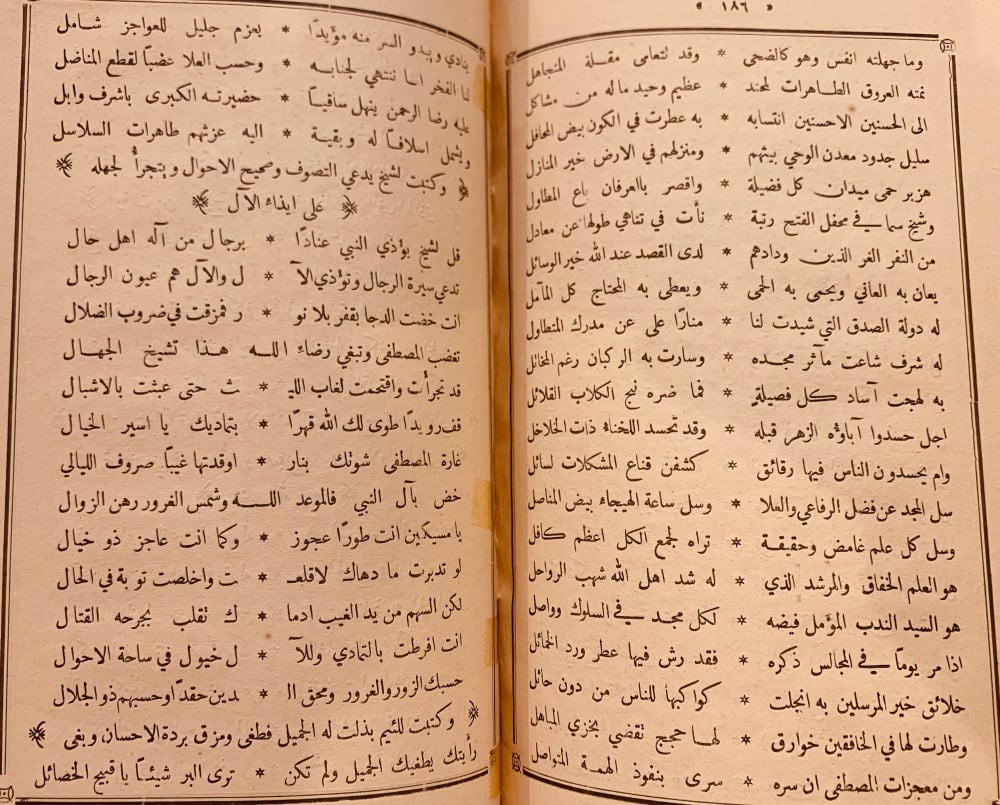 « ١٨٦ »
وما جهلته انفس وهو كالضحى * وقد تتعامى مقلة المتجاهل
نمته العروق الطاهرات لمحتد * عظيم وحيد ماله من مشاكل
الى الحسنين الاحسنين انتسابه * به عطرت في الكون بيض المحافل
سليل جدود معدن الوحي بيتهم * ومنزلهم في الارض خير المنازل
هزبر حمى ميدان كل فضيلة * واقصر بالعرفان باع المطاول
وشيخ سما في محفل الفتح رتبة * نأت في تناهي طولها عن معادل
من النفر الغر الذين ودادهم * لدى القصد عند الله خير الوسائل
يعان به العاني ويحمى به الحمى * ويعطى به المحتاج كل المآمل
له دولة الصدق التي شيدت لنا * منارًا على عن مدرك المتطاول
له شرف شاعت مآثر مجده * وسارت به الركبان رغم المخائل
به لهجت آساد كل فصيلة * فما ضره نبح الكلاب القلائل
اجل حسدوا آباؤه الزهر قبله * وقد تحسد اللخناء ذات الخلاخل
وام يحسدون الناس فيها رقائق * كشفن قناع المشكلات لسائل
سل المجد عن فضل الرفاعي والعلا * وسل ساعة الهيجاء بيض المناصل
وسل كل علم غامض وحقيقة * تراه لجمع الكل اعظم كافل
هو العلم الخفاق والمرشد الذي * له شد اهل الله شهب الرواحل
هو السيد الندب المؤمل فيضه * لكل مجد في السلوك وواصل
اذا مر يومًا في المجالس ذكره * فقد رش فيها عطر ورد الخمائل
خلائق خير المرسلين به انجلت * كواكبها للناس من دون حائل
وطارت لها في الخافقين خوارق * لها حجج تقضي بخزي المباهل
ومن معجزات المصطفى ان سره * سرى بنفوذ الهمة المتواصل
ينادي ويبدو السر منه مؤيدًا * بعزم جليل للعواجز شامل
لنا الفخر انا ننتهي لجنابه * وحسب العلا عضبًا لقطع المناضل
عليه رضا الرحمن ينهل ساقيًا * حضيرته الكبرى باشرف وابل
ويشمل اسلافًا له وبقية * اليه عزتهم طاهرات السلاسل
وكتبت لشيخ يدعي التصوف وصحيح الاحوال ويتجرأ لجهله
على ايذاء الآل
قل لشيخ يؤذي النبي عنادًا * برجال من آله اهل حال
تدعي سيرة الرجال وتؤذي الآ * ل والآل هم عيون الرجال
انت خضت الدجا بقفر بلا نو * ر فمزقت في ضروب الضلال
تغضب المصطفى وتبغي رضاء الله هذا تشيخ الجهال
قد تجرأت واقتحمت لغاب الليـ * ـث حتى عبثت بالاشبال
فف رويدًا طوى لك الله قهرًا * بتماديك يا اسير الخيال
غارة المصطفى شوتك بنار * اوقدتها غيبًا صروف الليالي
خض بآل النبي فالموعد الله وشمس الغرور رهن الزوال
يا مسيكين انت طورًا عجوز * وكما انت عاجز ذو خيال
لو تدبرت ما دهاك لاقلعـ * ـت واخلصت توبة في الحال
لكن السهم من يد الغيب ادما * ك تقلب بجرحه القتال
انت افرطت بالتمادي وللآ * ل خيول في ساحة الاحوال
حسبك الزور والغرور ومحق الـ * ـدين حقدًا وحسبهم ذو الجلال
وكتبت للئيم بذلت له الجميل فطغى ومزق بردة الاحسان وبغى
رأيتك يطغيك الجميل ولم تكن * ترى البر شيئًا يا قبيح الخصائل